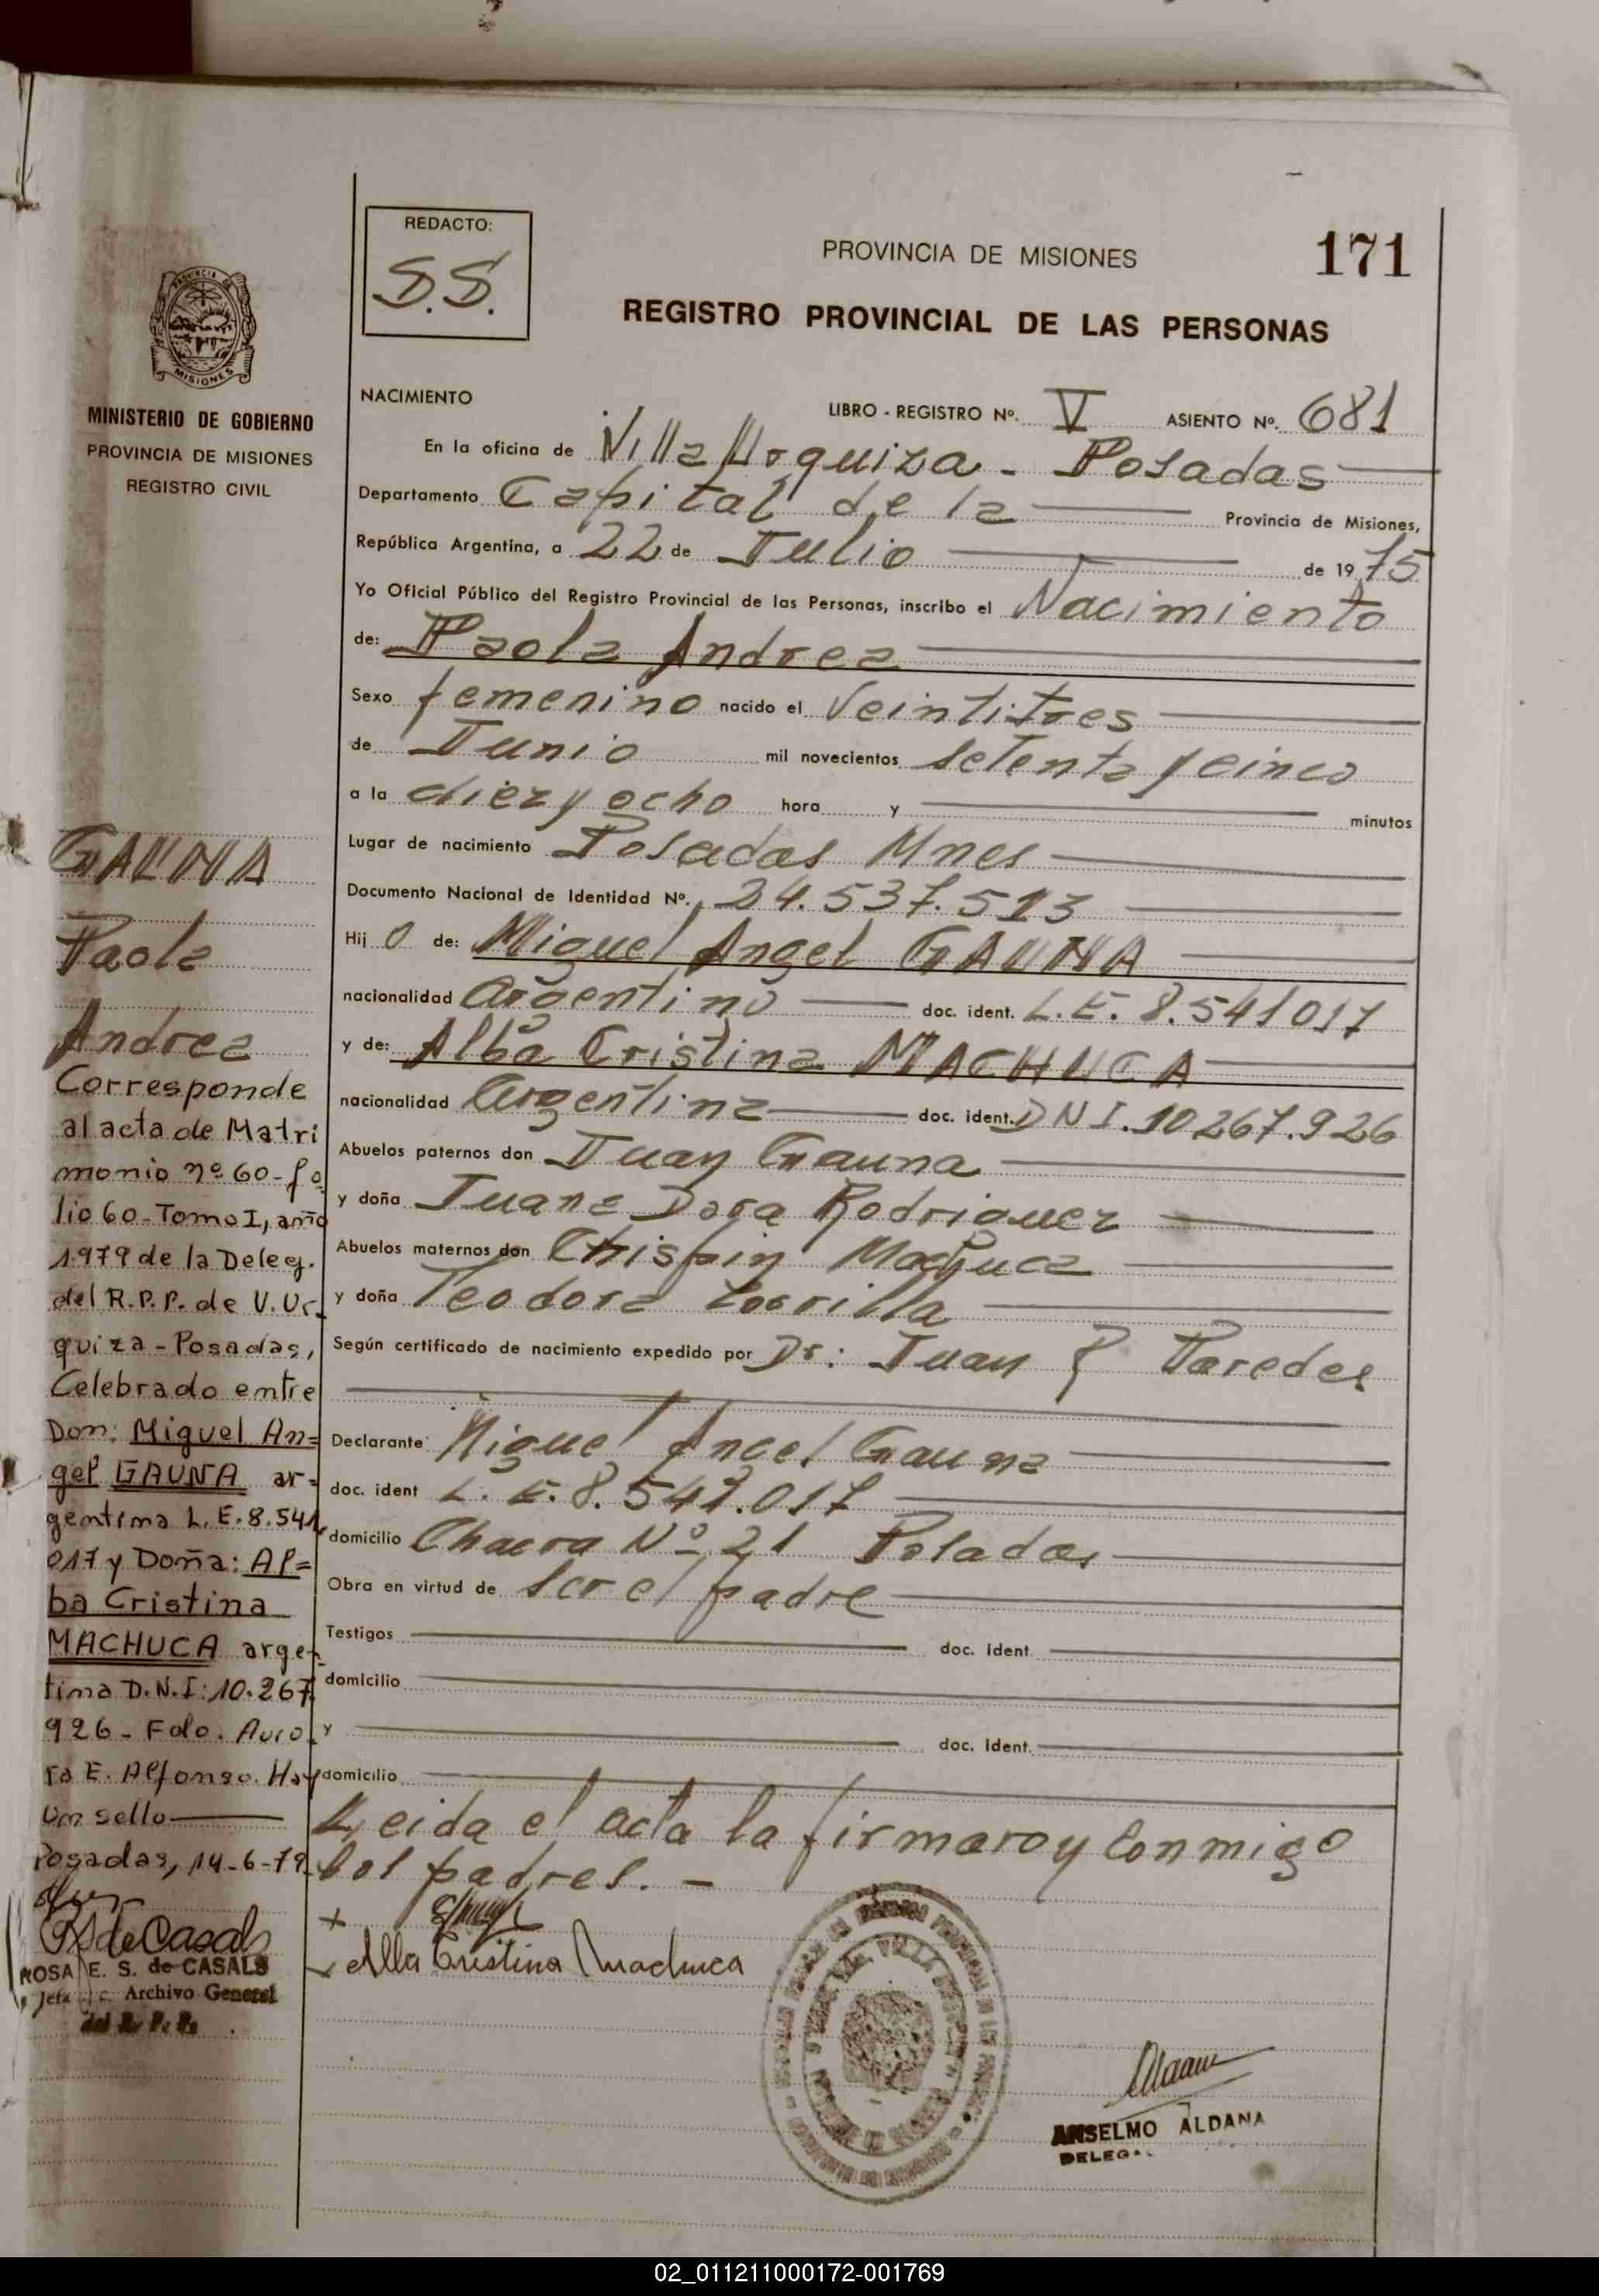 REDACTO:
S.S.
PROVINCIA DE MISIONES
171
REGISTRO PROVINCIAL DE LAS PERSONAS
PROVINCIA
MISIONES
MINISTERIO DE GOBIERNO
PROVINCIA DE MISIONES
REGISTRO CIVIL
NACIMIENTO
LIBRO - REGISTRO Nº. V ASIENTO Nº. 681
En la oficina de Villa Urquiza - Posadas
Departamento Capital de la Provincia de Misiones,
República Argentina, a 22 de Julio de 1975
Yo Oficial Público del Registro Provincial de las Personas, inscribo el Nacimiento
de: Paola Andrea
Sexo femenino nacido el Veintitres
de Junio mil novecientos setenta y cinco
a la diez y ocho hora y minutos
Lugar de nacimiento Posadas Mnes
Documento Nacional de Identidad Nº. 24.537.513
Hij o de: Miguel Angel GAUNA
nacionalidad Argentino doc. ident. L.E. 8.541017
y de: Alba Cristina MACHUCA
nacionalidad Argentina doc. ident. DNI. 10267.926
Abuelos paternos don Juan Gauna
y doña Juana Dora Rodriguez
Abuelos maternos don Chispin Machuca
y doña Teodora
Según certificado de nacimiento expedido por Dr: Juan P Paredes
Declarante Miguel Angel Gauna
doc. ident L.E. 8.541.017
domicilio Chacra Nº 21 Posadas
Obra en virtud de ser el padre
Testigos doc. ident
domicilio
y doc. ident.
domicilio
Leida el acta la firmaron conmigo
los padres. -
x
Alba Cristina Machuca
ANSELMO ALDANA
DELEG
GAUNA
Paola
Andrea
Corresponde
al acta de Matri
monio nº 60 - fo
lio 60 - Tomo I, año
1979 de la Deleg.
del R.P.P. de V. Ur
quiza - Posadas,
Celebrado entre
Don: Miguel An=
gel GAUNA ar=
gentino L.E. 8.541.
017 y Doña: Al=
ba Cristina
MACHUCA argen
tina D.N.I: 10.267
926 - Fdo. Auro
ra E. Alfonso. Hay
un sello
Posadas, 14-6-79
RS de Casals
ROSA E. S. de CASALS
Jefa Archivo General
del R. P. P.
02_011211000172-001769